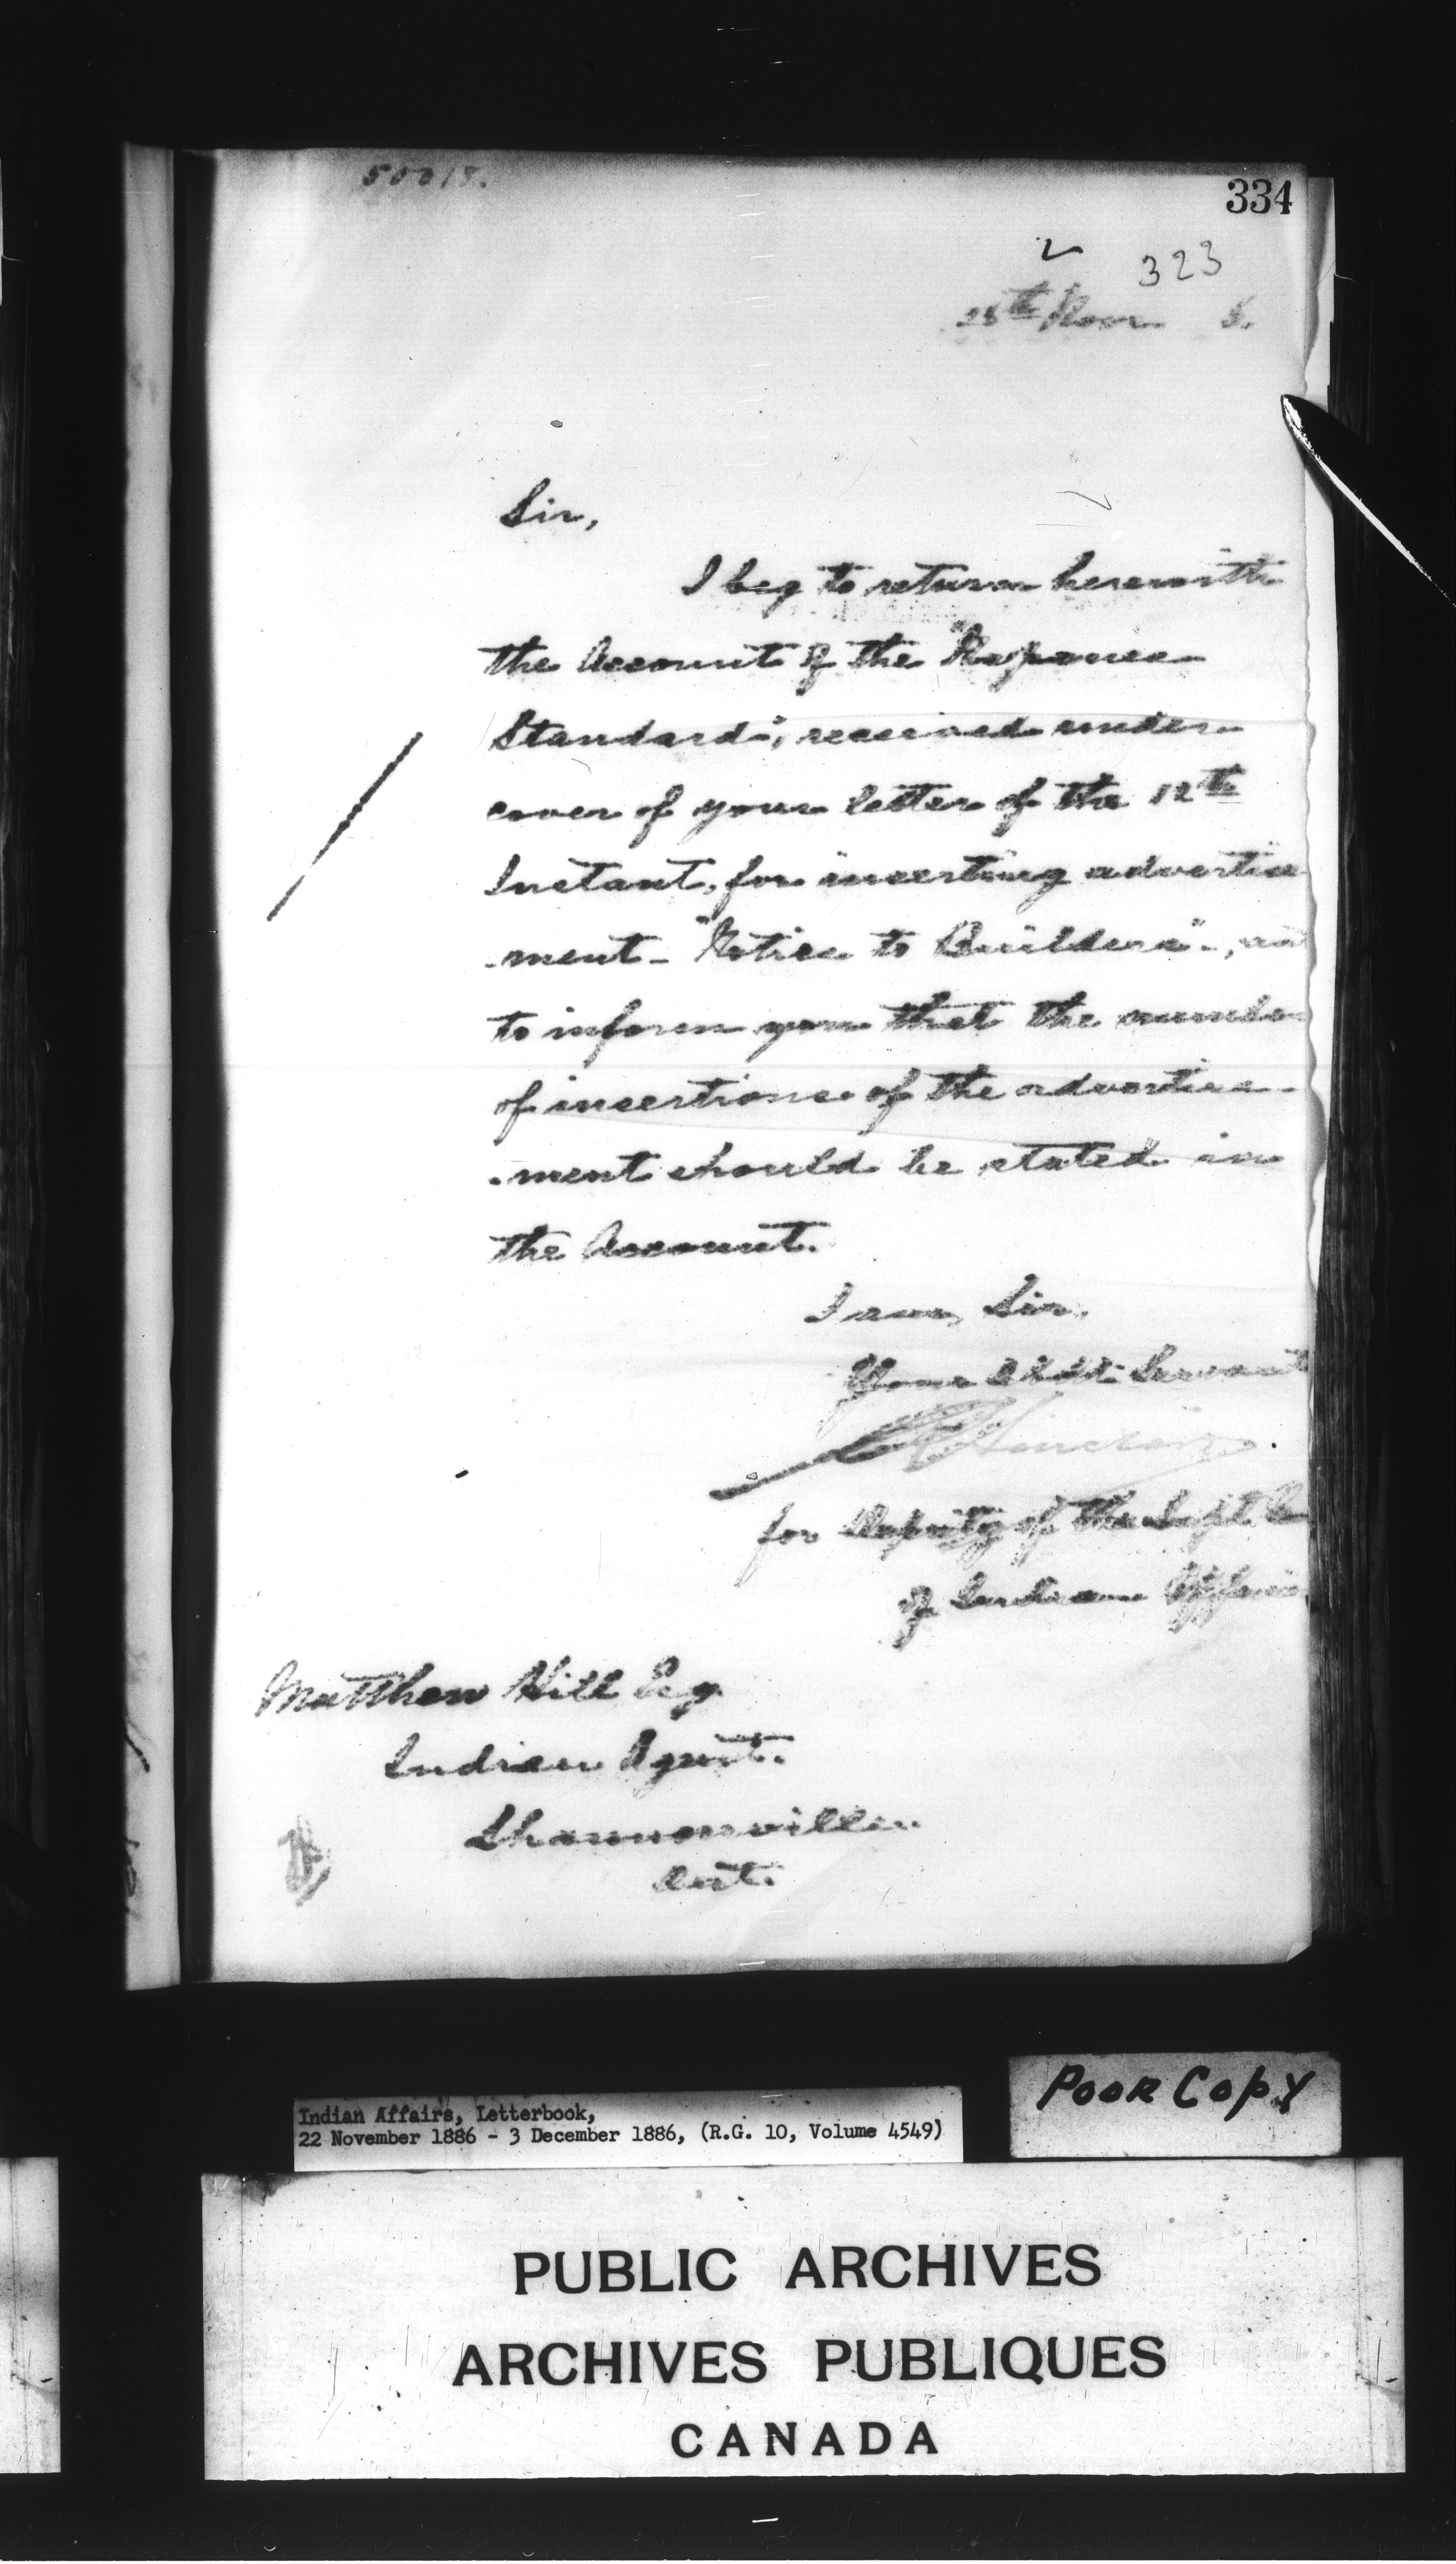 50018.
334
323
25th Novr. 6.
Sir,
I beg to return herewith
the Account of the "Napanee
Standard", received under
cover of your letter of the 12th
Instant, for inserting advertise
-ment - "Notice to Builders"., and
to inform you that the number
of insertions of the advertise-
-ment should be stated in
the Account.
I am, Sir,
Your Obdt. Servant
Sinclair
for Deputy of the Supt. G
of Indian Affairs
Matthew Hill Esq.
Indian Agent.
Shannonville.
Ont.
POOR COPY
Indian Affairs, Letterbook,
22 November 1886 - 3 December 1886, (R.G. 10, Volume 4549)
PUBLIC ARCHIVES
ARCHIVES PUBLIQUES
CANADA